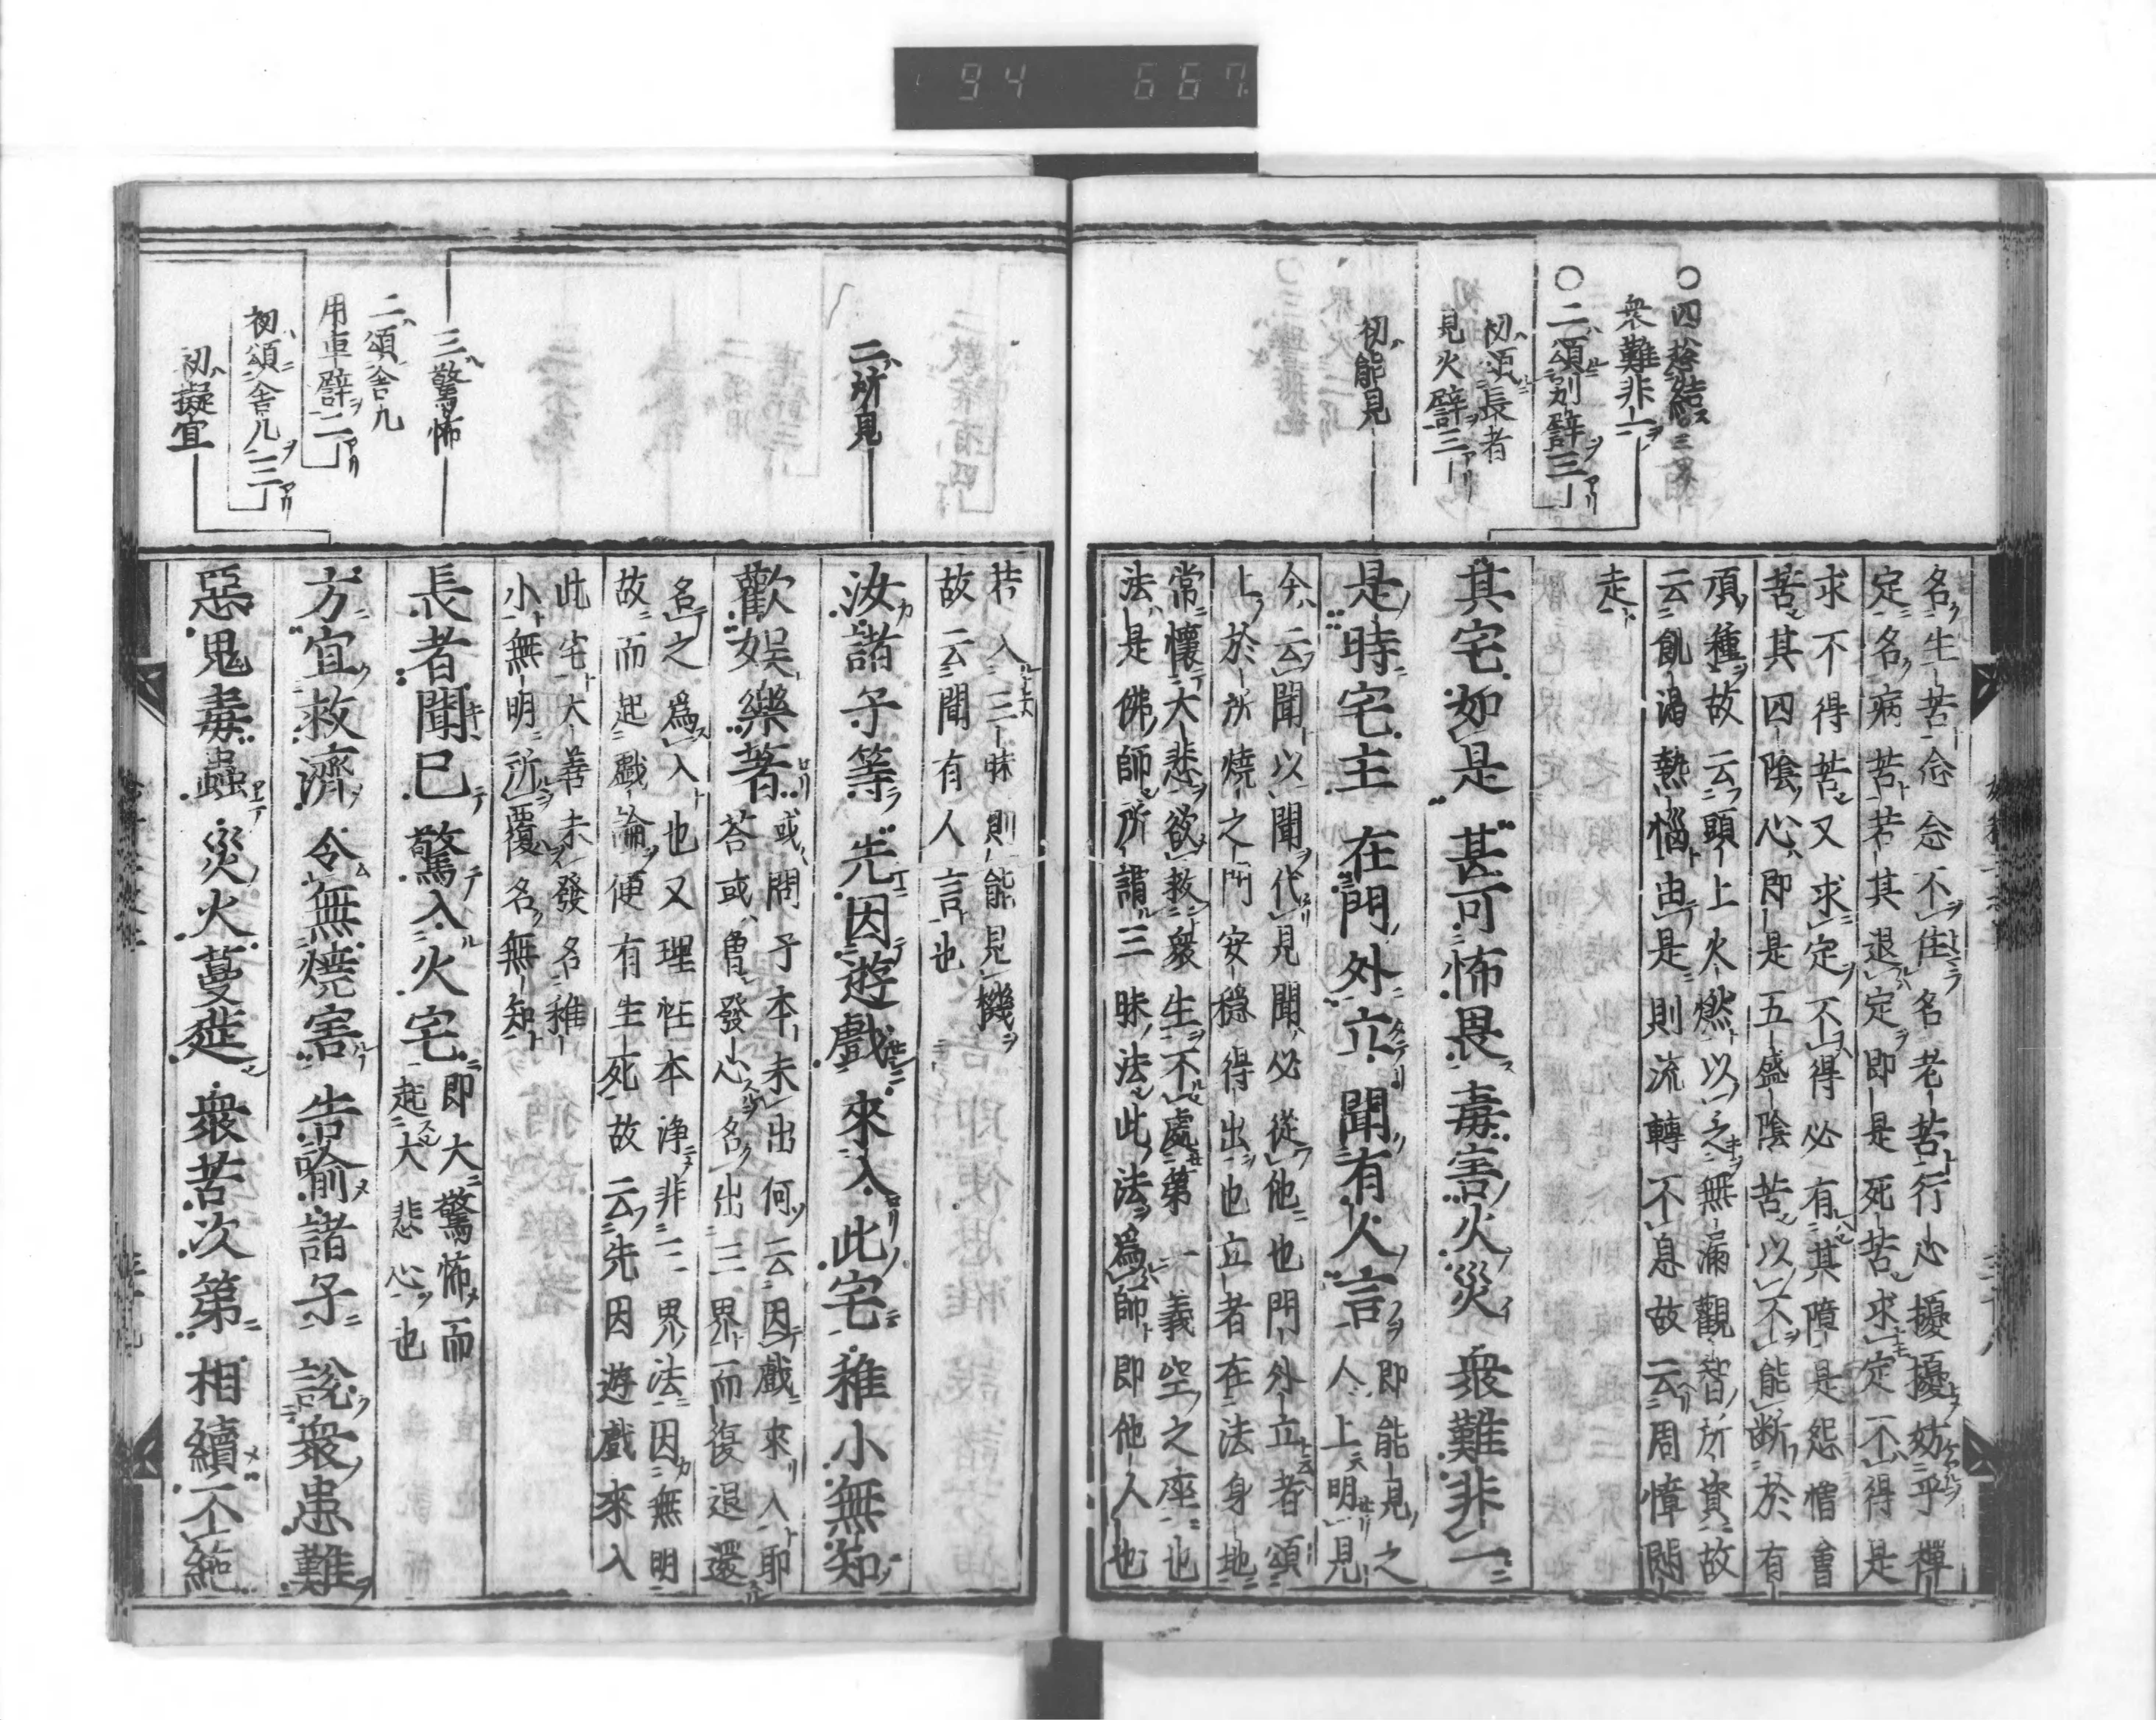 94 667
○四總結三界
衆難非一
○二頌別譬三
初頌長者
見火譬三
初能見
名生苦念念不住名老苦行心擾擾妨乎禪
定名病苦若其退定即是死苦求定不得是
求不得苦又求定不得必有其障是怨憎會
苦其四陰心即是五盛陰苦以不能断於有
頂種故云頭上火燃以之無漏觀智所資故
云飢渴熱惱由是則流轉不息故云周慞悶
走
其宅如是甚可怖畏毒害火災衆難非一
是時宅主在門外立聞有人言
即能見之
人上明見
今云聞以聞代見聞必從他也門外立者頌
上於所燒之門安穩得出也立者在法身地
常懷大悲欲救衆生不處第一義空之座也
法是佛師所謂三昧法此法爲師即他人也
二所見
三驚怖
二頌舍几
用車譬二
初頌舍几三
初擬宜
若入三昧則能見機
故云聞有人言也
汝諸子等先因遊戲來入此宅稚小無知
歡娱樂著
或問子本未出何云因戲來入耶
荅或曾發心名出三界而復退還
名之爲入也又理性本淨非三界法因無明
故而起戲論便有生死故云先因遊戲來入
此宅大善未發名稚
小無明所覆名無知
長者聞已驚入火宅
即大驚怖而
起大悲心也
方宜救濟令無燒害告喻諸子說衆患難
惡鬼毒蟲災火蔓莚衆苦次第相續不絶